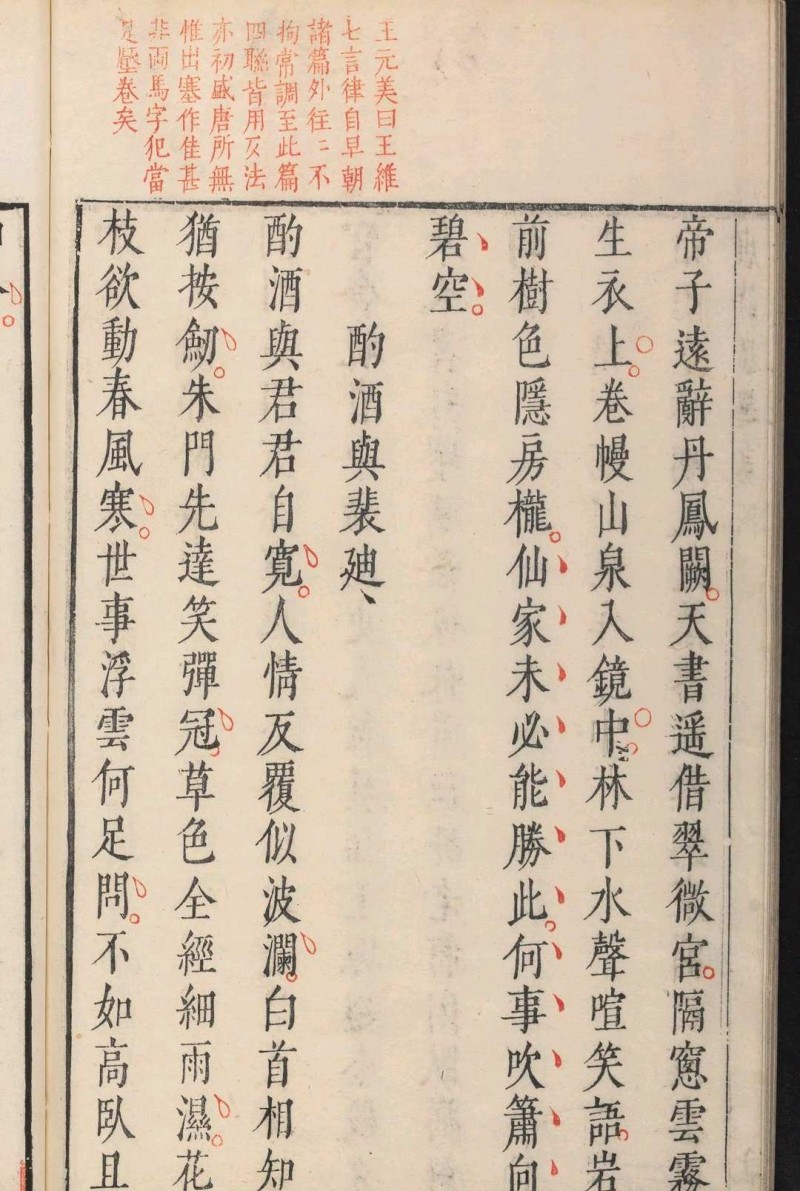 王元美曰王維
七言律自早朝
諸篇外往〻不
拘常調至此篇
四聯皆用仄法
亦初盛唐所無
惟出塞作佳甚
非兩馬字犯當
足壓卷矣
帝子遠辭丹鳳闕天書遥借翠微宮隔窻雲霧
生衣上卷幔山泉入鏡中林下水聲喧笑語岩
前樹色隱房櫳仙家未必能勝此何事吹簫向
碧空
酌酒與裴廸
酌酒與君君自寛人情反覆似波瀾白首相知
猶按劒朱門先達笑彈冠草色全經細雨濕花
枝欲動春風寒世事浮雲何足問不如高臥且